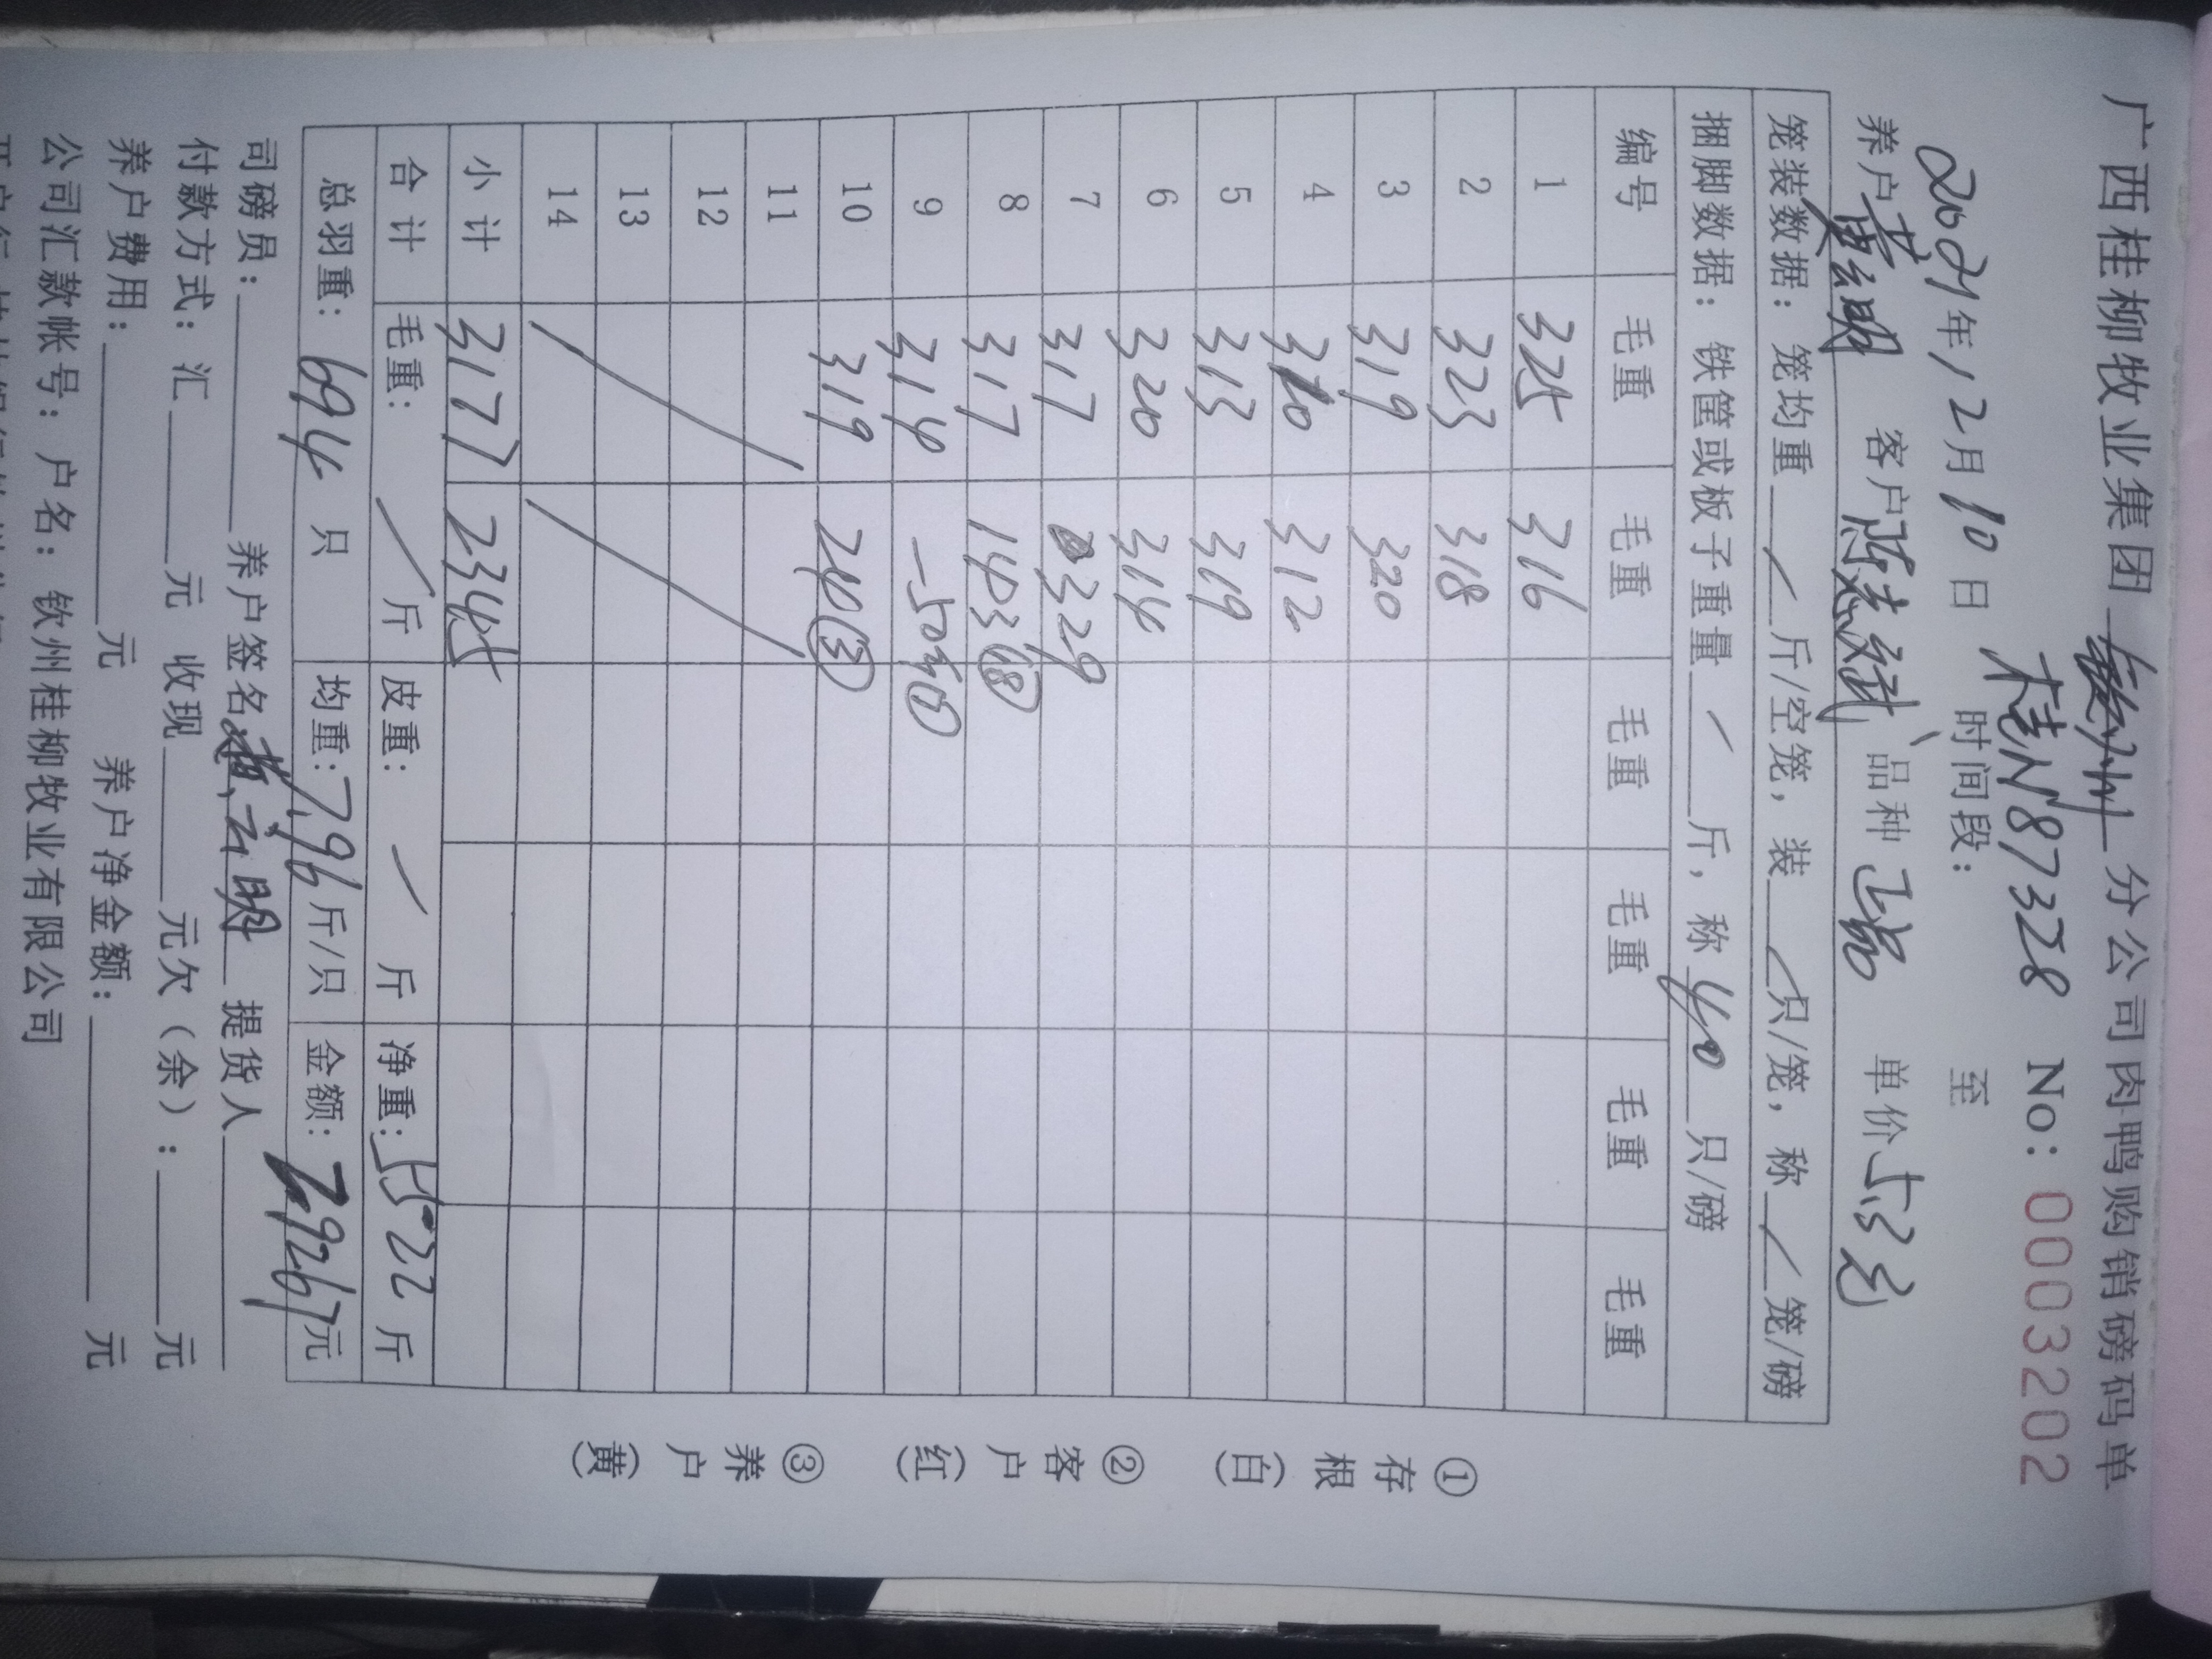 广西桂柳牧业集团 钦州 分公司肉鸭购销磅码单
桂N87328 No: 0003202
2021年12月10日 时间段: 至
养户 黄云明 客户 陈志斌 品种 正品 单价 5.3元
笼装数据: 笼均重 / 斤/空笼, 装 / 只/笼, 称 / 笼/磅
捆脚数据: 铁筐或板子重量 / 斤, 称 40 只/磅
编号 毛重 毛重 毛重 毛重 毛重 毛重
1 325 316
2 323 318
3 319 320
4 310 312
5 313 319
6 320 314
7 317 329
8 317 143⑱
9 314 -50
10 319 24③
11
12
13
14
小计 3177 2345
合计 毛重: / 斤 皮重: / 斤 净重: 5522 斤
总羽重: 694 只 均重: 7.96 斤/只 金额: 29267元
司磅员: 养户签名 黄云明 提货人
付款方式: 汇 元 收现 元欠(余): 元
养户费用: 元 养户净金额: 元
公司汇款帐号: 户名: 钦州桂柳牧业有限公司
①存根(白) ②客户(红) ③养户(黄)